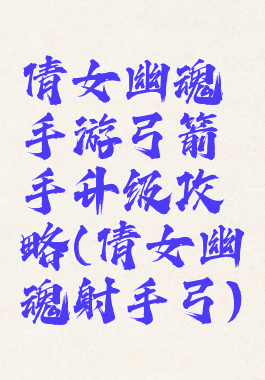 倩女幽魂
手游弓箭
手升级攻
略(倩女幽
魂射手弓)